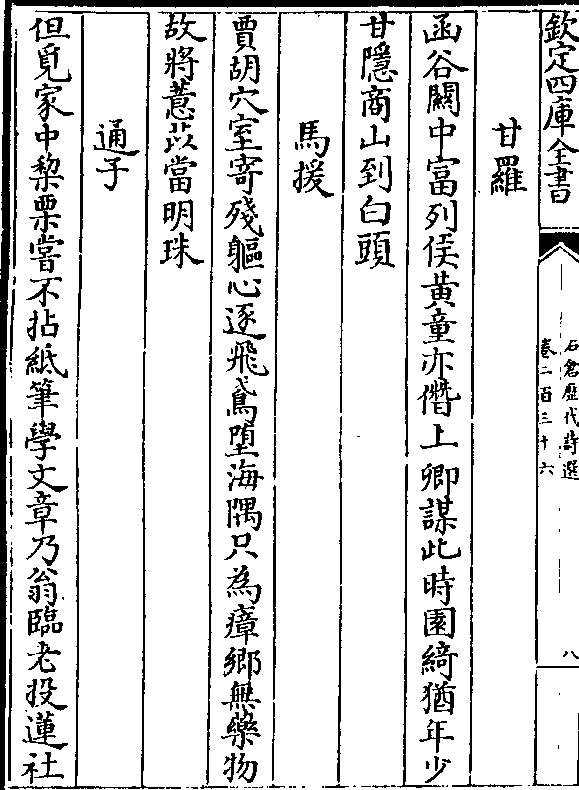 欽定四庫全書
石倉歷代詩選
卷二百三十六
八
甘羅
函谷關中富列侯黃童亦僭上卿謀此時園綺猶年少
甘隱商山到白頭
馬援
賈胡穴室寄殘軀心逐飛鳶墮海隅只為瘴鄉無藥物
故將薏苡當明珠
通子
但覓家中棃栗嘗不拈紙筆學文章乃翁臨老投蓮社